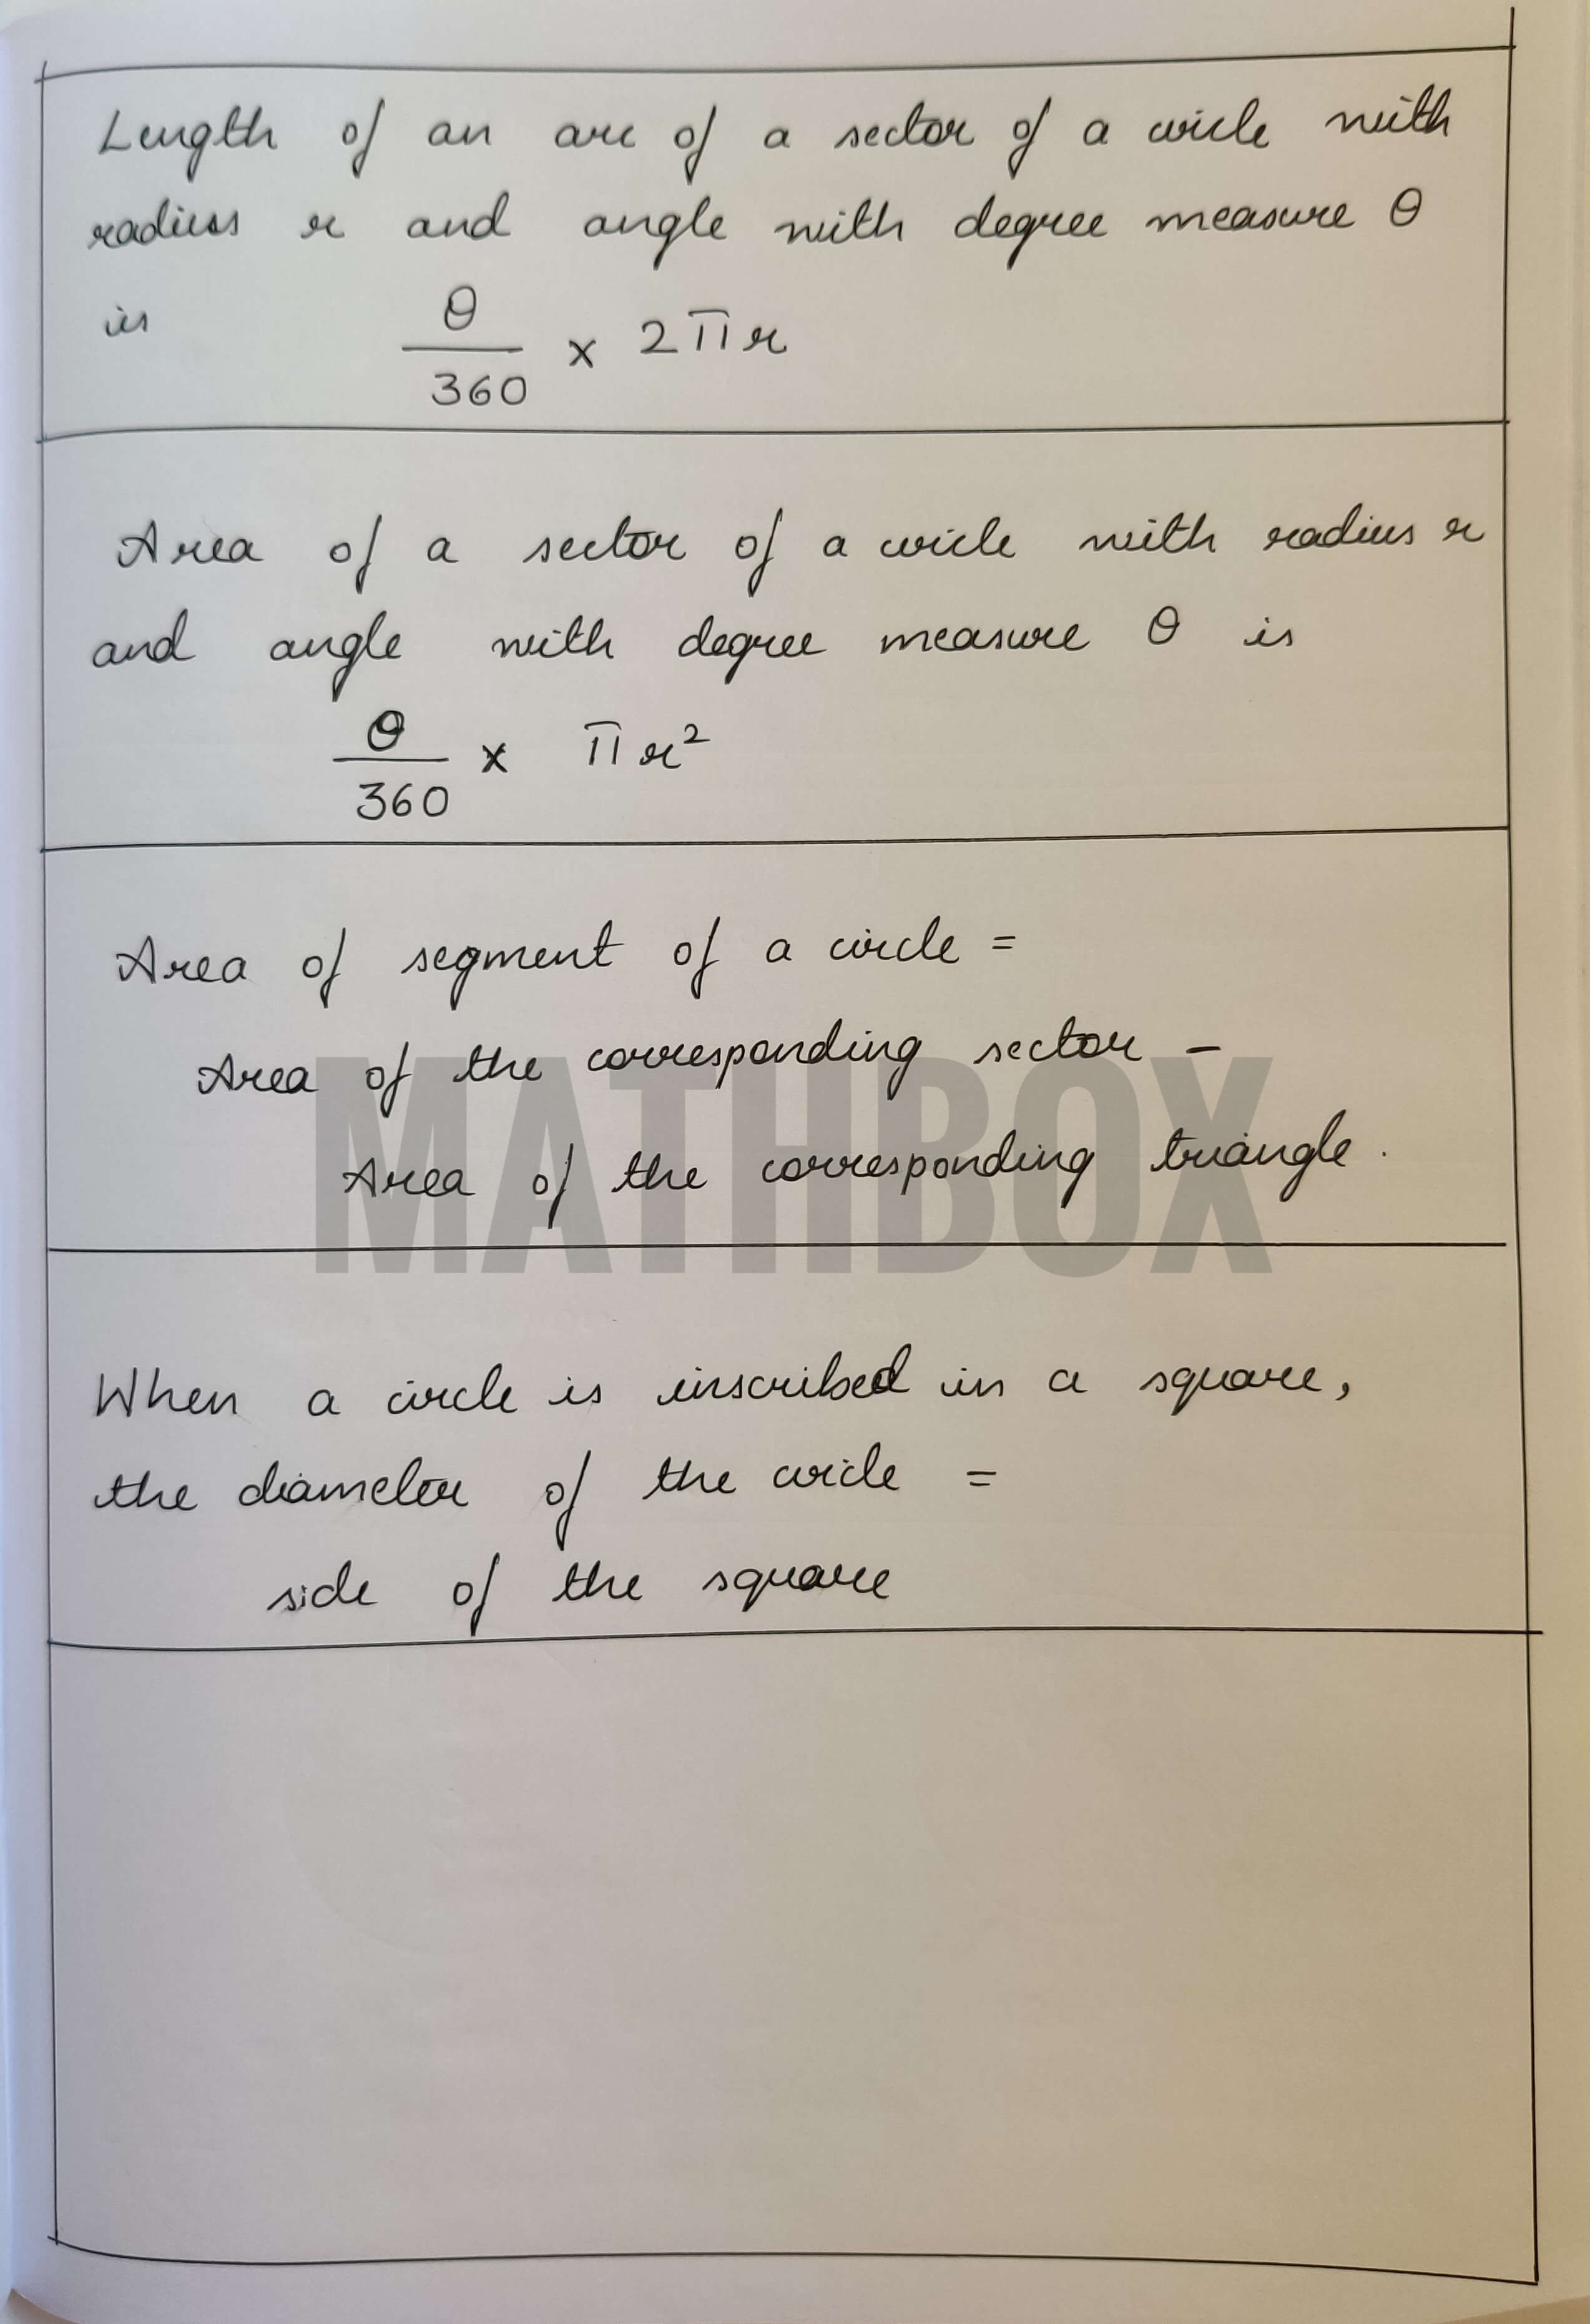 Length of an arc of a sector of a circle with
radius r and angle with degree measure θ
is θ/360 × 2πr
Area of a sector of a circle with radius r
and angle with degree measure θ is
θ/360 × πr²
Area of segment of a circle =
Area of the corresponding sector -
Area of the corresponding triangle.
MATHBOX
When a circle is inscribed in a square,
the diameter of the circle =
side of the square